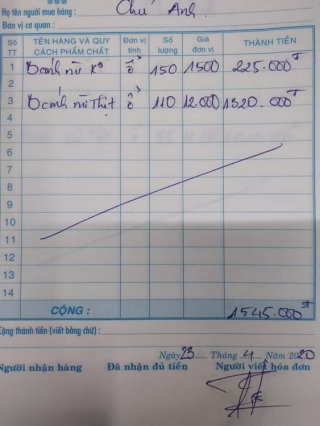 Họ tên người mua hàng : Chú Anh
Đơn vị cơ quan :
Số TT TÊN HÀNG VÀ QUY CÁCH PHẨM CHẤT Đơn vị tính Số lượng Giá đơn vị THÀNH TIỀN
1 Bánh mì Ko ổ 150 1500 225.000đ
2
3 Bánh mì Thịt ổ 110 12.000 1320.000đ
4
5
6
7
8
9
10
11
12
13
14
CỘNG : 1545.000đ
Cộng thành tiền (viết bằng chữ) :
Ngày 23 Tháng 4 Năm 2020
Người nhận hàng Đã nhận đủ tiền Người viết hóa đơn